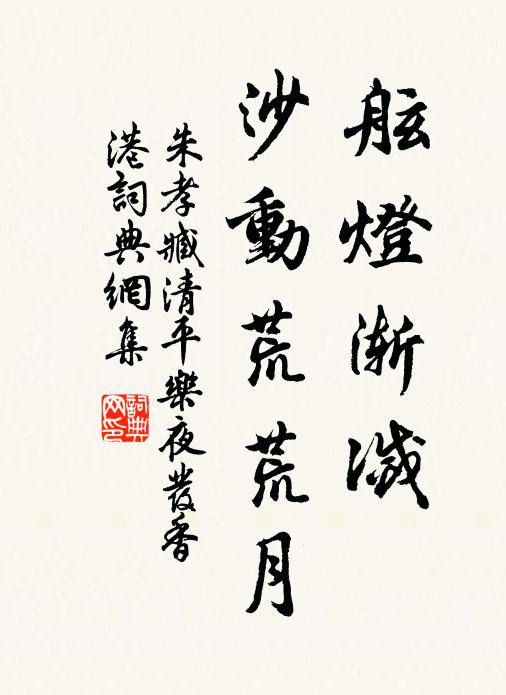 舷燈漸滅
沙動荒荒月
朱孝臧清平樂夜發香
港詞典網集
詞典網印